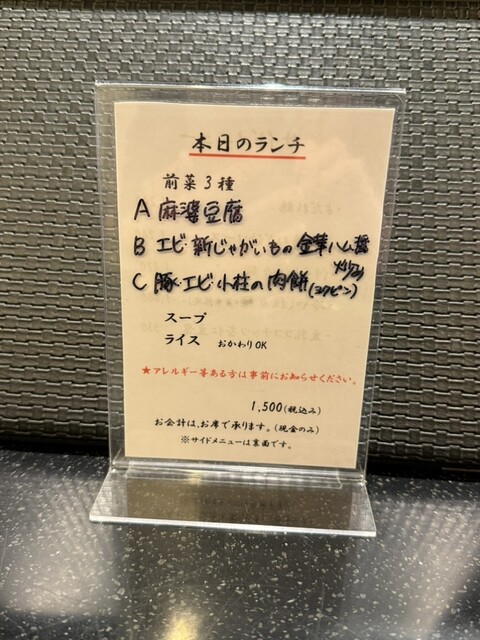 本日のランチ
前菜3種
A 麻婆豆腐
B エビ・新じゃがいもの金華ハム醤
炒め
C 豚・エビ・小柱の肉餅
スープ
ライス おかわりOK
★アレルギー等ある方は事前にお知らせください。
1,500(税込み)
お会計は、お席で承ります。(現金のみ)
※サイドメニューは裏面です。